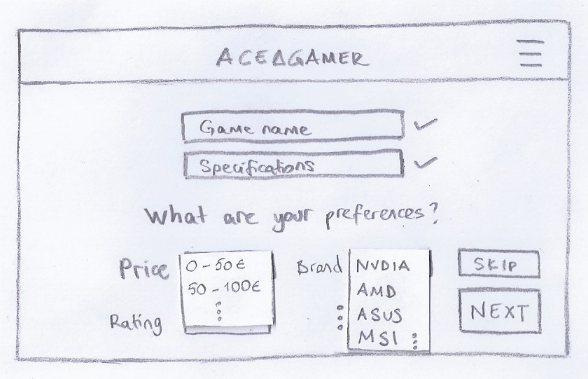 ACEΔGAMER
Game name
Specifications
What are your preferences?
Price
0-50€
50-100€
Rating
Brand
NVDIA
AMD
ASUS
MSI
SKIP
NEXT